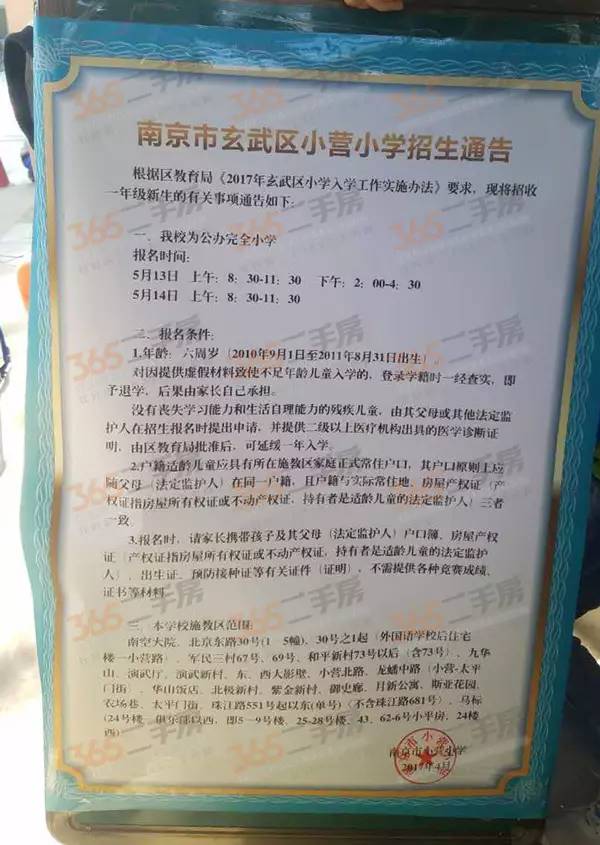 南京市玄武区小营小学招生通告
根据区教育局《2017年玄武区小学入学工作实施办法》要求，现将招收
一年级新生的有关事项通告如下：
一、我校为公办完全小学
报名时间：
5月13日 上午：8：30-11：30 下午：2：00-4：30
5月14日 上午：8：30-11：30
二、报名条件：
1.年龄：六周岁（2010年9月1日至2011年8月31日出生）
对因提供虚假材料致使不足年龄儿童入学的，登录学籍时一经查实，即
予退学，后果由家长自己承担。
没有丧失学习能力和生活自理能力的残疾儿童，由其父母或其他法定监
护人在招生报名时提出申请，并提供二级以上医疗机构出具的医学诊断证
明，由区教育局批准后，可延缓一年入学。
2.户籍适龄儿童应具有所在施教区家庭正式常住户口，其户口原则上应
随父母（法定监护人）在同一户籍，且户籍与实际常住地、房屋产权证（产
权证指房屋所有权证或不动产权证，持有者是适龄儿童的法定监护人）三者
一致。
3.报名时，请家长携带孩子及其父母（法定监护人）户口簿、房屋产权
证（产权证指房屋所有权证或不动产权证，持有者是适龄儿童的法定监护
人）、出生证、预防接种证等有关证件（证明），不需提供各种竞赛成绩、
证书等材料。
三、本学校施教区范围：
南空大院、北京东路30号(1—5幢)、30号之1起（外国语学校后住宅
楼—小营路）、军民三村67号、69号、和平新村73号以后（含73号）、九华
山、演武厅、演武新村、东、西大影壁、小营北路、龙蟠中路（小营-太平
门街）、华山饭店、北极新村、紫金新村、御史廊、月新公寓、斯亚花园、
农场巷、太平门街、珠江路551号起以东(单号)（不含珠江路681号）、马标
(24号楼、俱乐部以西，即5—9号楼、25-28号楼、43、62-6号小平房、24楼
西)
南京市小营小学
2017年4月
365二手房